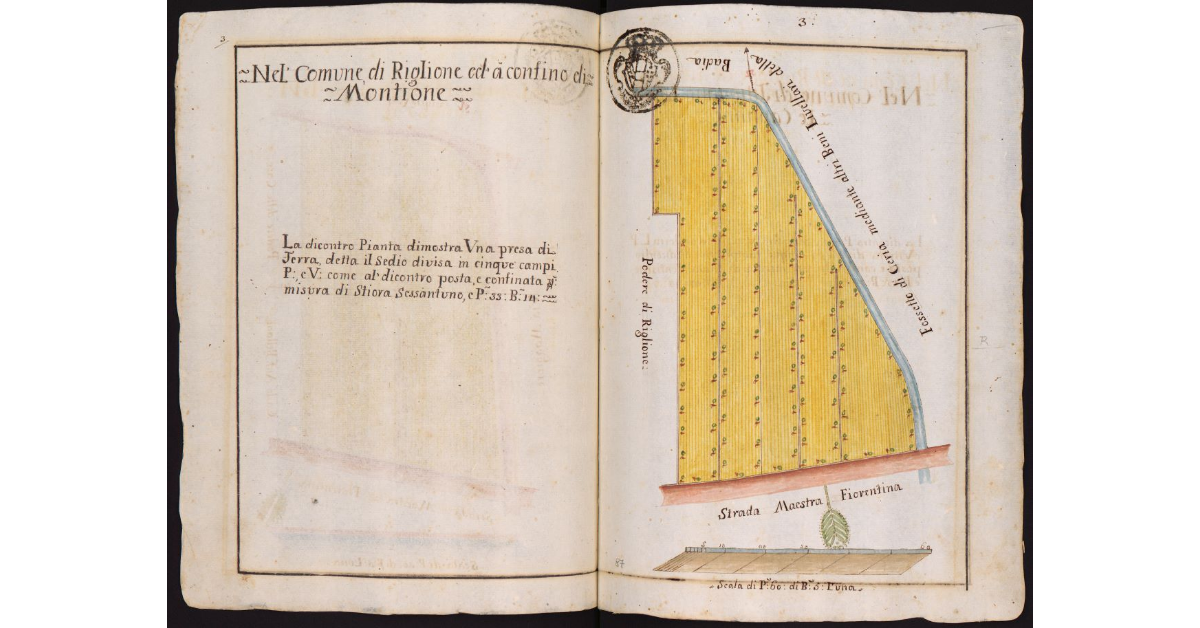 3
Nel Comune di Riglione ed à confino di
Montione
La dicontro Pianta dimostra Vna presa di
Terra, detta il Sedio divisa in cinque campi
P: e V: come al dicontro posta, e confinata p
misura di Stiora Sessantuno, e P. 33: B.
3:
Badia
Fossetto di Ceria mediante altri Beni Livellari della
Podere di Riglione:
Strada Maestra Fiorentina
87
Scala di P. 60: di B. 5: l'una
R